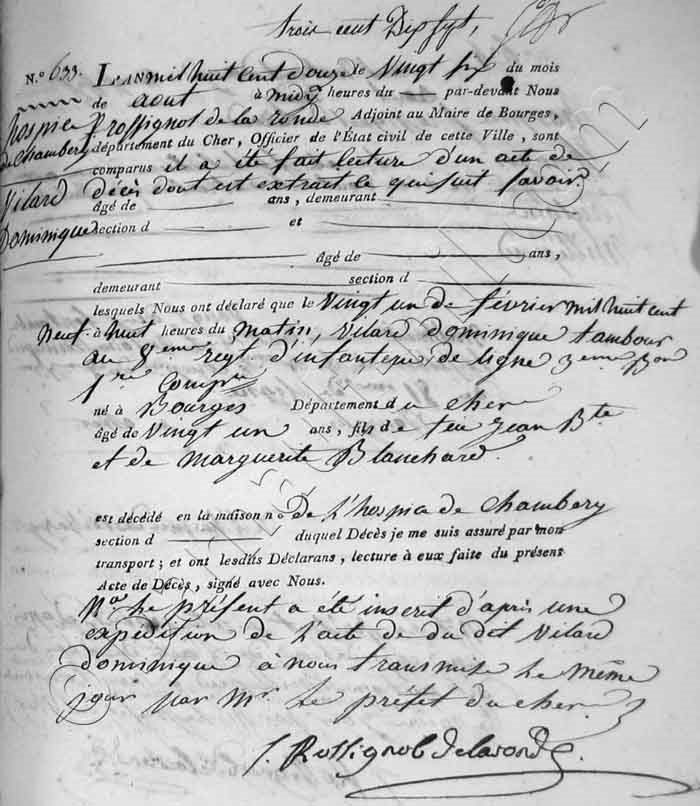 trois cent Dix sept,
N.º 633. L'AN mil huit cent douze le Vingt six du mois
de aout à midy heures du par-devant Nous
hospice f. rossignol de la ronde Adjoint au Maire de Bourges,
de Chambery département du Cher, Officier de l'État civil de cette Ville, sont
comparus il a été fait lecture d'un acte de
Vilard décès dont est extrait le qui suit savoir.
âgé de ans, demeurant
Dominique section d et
âgé de ans,
demeurant section d
lesquels Nous ont déclaré que le Vingt un de février mil huit cent
neuf à huit heures du matin, Vilard dominique tambour
au 8.eme regt. d'infanterie de ligne 3.eme Bon
1.re Compie
né à Bourges Département du cher
âgé de Vingt un ans, fils de feu jean Bte
et de marguerite Blanchard.
est décédé en la maison n.o De L'hospice de Chambery
section d duquel Décès je me suis assuré par mon
transport; et ont lesdits Déclarans, lecture à eux faite du présent
Acte de Décès, signé avec Nous.
Nta Le présent a été inscrit d'après une
expédition de L'acte de du dit Vilard
dominique à nous transmise Le même
jour par mr. Le préfet du cher
f. Rossignol Delaronde